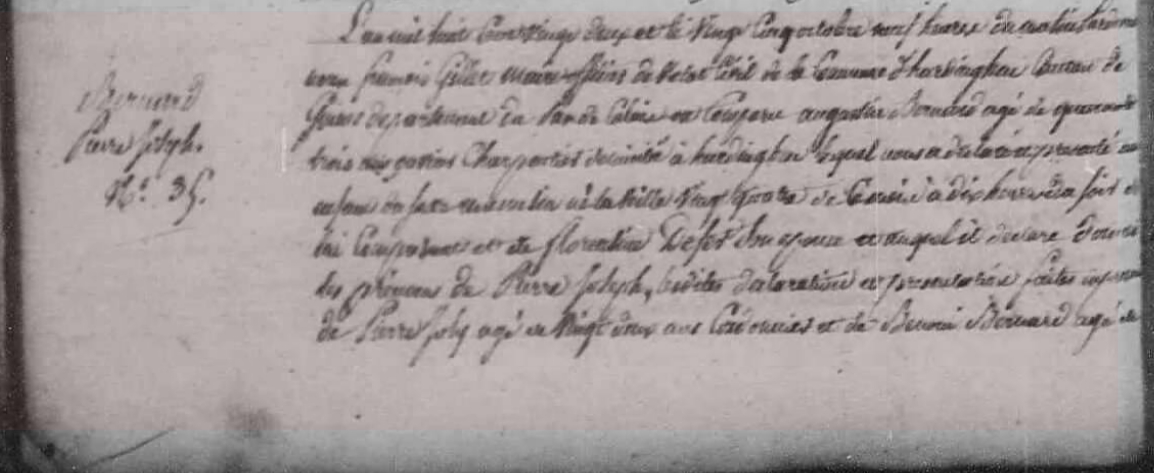 Bernard
Pierre Joseph.
N.° 35.
L'an mil huit Cent vingt deux et le vingt Cinq octobre neuf heures du matin pardevant
nous françois Gillet maire officier de l'Etat Civil de la Commune d'hardinghen Canton de
Guines departement du Pas de Calais est Comparu augustin Bernard agé de quarante
trois ans Charpentier domicilié à hardinghen lequel nous a declaré et presenté un
enfant du sexe masculin né la veille vingt quatre de Ce mois à dix heures du soir de
lui Comparant et de florentine son epouse et auquel il declare donner
les prénoms de Pierre Joseph, lesdites declaration et presentation faites
de Pierre agé de vingt deux ans Cordonnier et de Benoni Bernard agé de